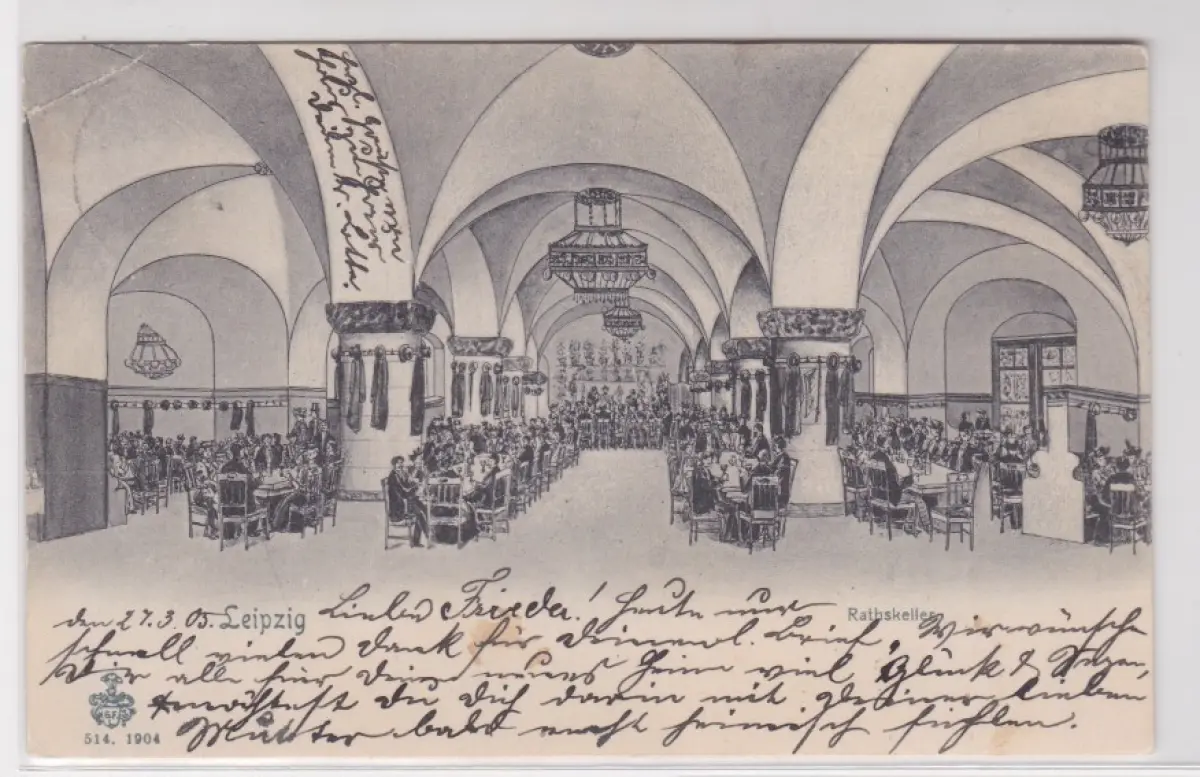 den 27.3.05. Leipzig Liebe Frieda! Heute nur Rathskeller
schnell vielen Dank für Deinen l. Brief, Wir wünschen
Dir alle für Dein neues Heim viel Glück & Segen,
möchtest Du Dich darin mit Deiner lieben
Mutter bald recht heimisch fühlen.
514. 1904
Herzl. Grüße